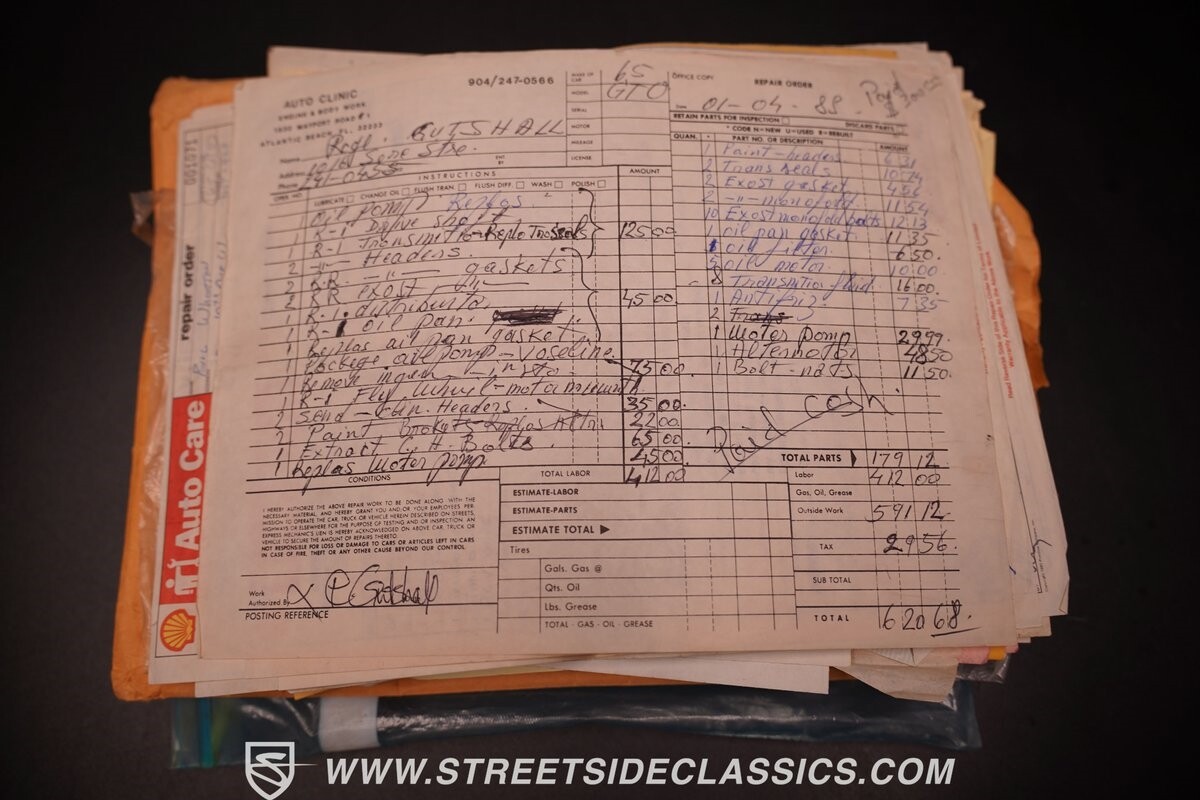 AUTO CLINIC
ENGINE & BODY WORK
1850 MAYPORT ROAD # 1
ATLANTIC BEACH, FL. 32233
904/247-0566
MAKE OF CAR 65
MODEL GTO
SERIAL
MOTOR
MILEAGE
LICENSE
OFFICE COPY
REPAIR ORDER
Date 01-04-88
RETAIN PARTS FOR INSPECTION
DISCARD PARTS
* CODE N=NEW U=USED R=REBUILT
Name GUTSHALL
Address
Phone 241-0455
INSTRUCTIONS
AMOUNT
OPER. NO. LUBRICATE CHANGE OIL FLUSH TRAN. FLUSH DIFF. WASH POLISH
1 Oil pomp Replas.
1 R-1 Drive shaft
1 R-1 Transmition Replo Tnsseals 125 00
2 -"- Headers
2 R.R. -"- gaskets
2 R.R. exost -"-
1 R-1. distributor 45 00
1 R-1 oil pan.
1 Replas oil pan gasket.
1 Packege oil pomp - vaseline.
1 Remove 75 00.
1 R-1 Fly wheel - motor mounth.
2 Send - Headers. 35 00.
2 Paint 22 00
1 Extract C.H. Bolts 65 00.
1 Replas Moter pomp 45 00.
TOTAL LABOR 412 00
QUAN. * PART NO. OR DESCRIPTION AMOUNT
1 Paint-headers 6.31
2 Trans seals 10.74
2 Exost gasket 4.56
2 -"- 11.54
10 Exost monofold bolts 12.13
1 oil pan gasket 11.35
1 oil filter. 6.50.
5 oil motor. 10.00
8 Transmition fluid 16 00.
1 Antifriz 7.35
2 Trans
1 Moter pomp 29 99.
1 Alternator 48 50
1 Bolt-nats 11 50.
Paid cash
TOTAL PARTS 179 12
Labor 412 00
Gas, Oil, Grease
Outside Work 591 12
TAX 29 56.
SUB TOTAL
TOTAL 620 68.
CONDITIONS
I HEREBY AUTHORIZE THE ABOVE REPAIR WORK TO BE DONE ALONG WITH THE
NECESSARY MATERIAL, AND HEREBY GRANT YOU AND/OR YOUR EMPLOYEES PERMISSION TO OPERATE THE CAR, TRUCK OR VEHICLE HEREIN DESCRIBED ON STREETS,
HIGHWAYS OR ELSEWHERE FOR THE PURPOSE OF TESTING AND/OR INSPECTION. AN
EXPRESS MECHANIC'S LIEN IS HEREBY ACKNOWLEDGED ON ABOVE CAR, TRUCK OR
VEHICLE TO SECURE THE AMOUNT OF REPAIRS THERETO.
NOT RESPONSIBLE FOR LOSS OR DAMAGE TO CARS OR ARTICLES LEFT IN CARS
IN CASE OF FIRE, THEFT OR ANY OTHER CAUSE BEYOND OUR CONTROL.
Work Authorized By
POSTING REFERENCE
ESTIMATE-LABOR
ESTIMATE-PARTS
ESTIMATE TOTAL
Tires
Gals. Gas @
Qts. Oil
Lbs. Grease
TOTAL - GAS - OIL - GREASE
001071
repair order
Auto Care
WWW.STREETSIDECLASSICS.COM